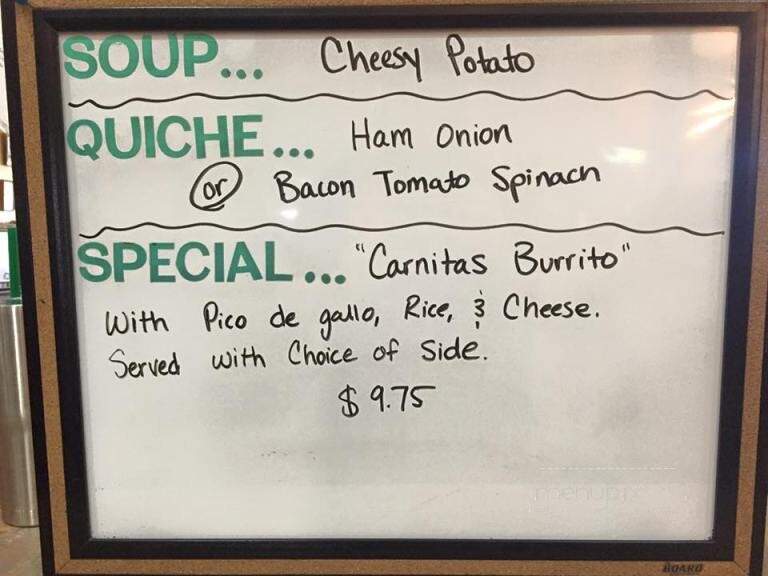 SOUP... Cheesy Potato
QUICHE... Ham Onion
or Bacon Tomato Spinach
SPECIAL... "Carnitas Burrito"
With Pico de gallo, Rice, & Cheese.
Served with Choice of Side.
$9.75
menupix
BOARD